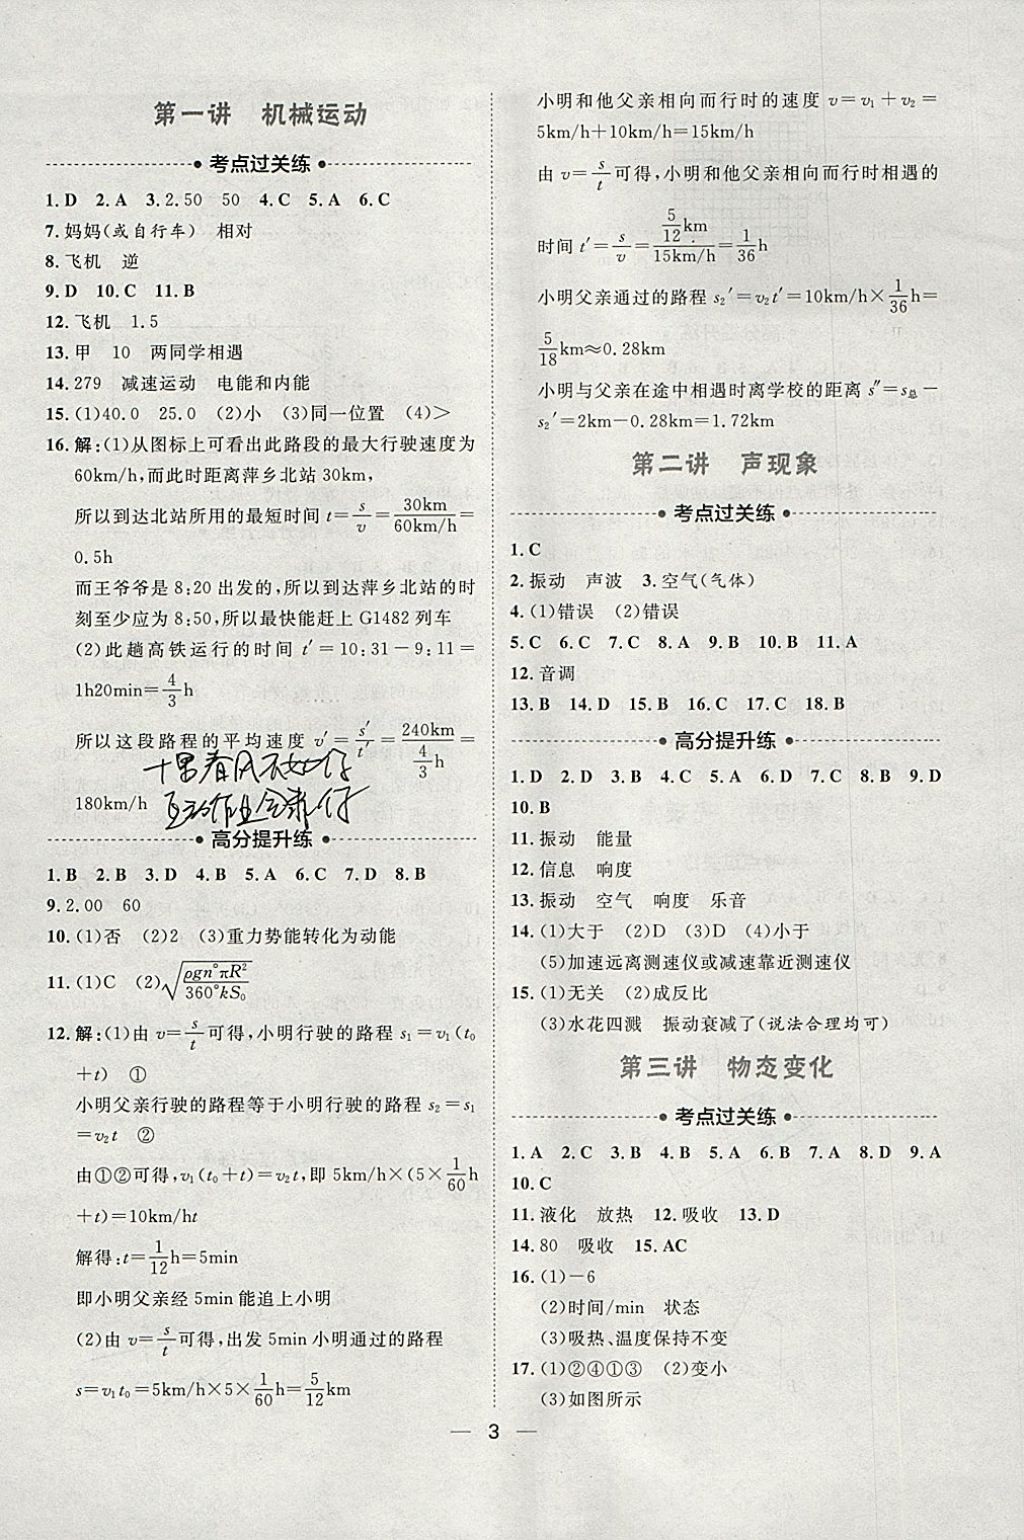 第一讲 机械运动
考点过关练
1.D 2.A 3.2.50 50 4.C 5.A 6.C
7.妈妈(或自行车) 相对
8.飞机 逆
9.D 10.C 11.B
12.飞机 1.5
13.甲 10 两同学相遇
14.279 减速运动 电能和内能
15.(1)40.0 25.0 (2)小 (3)同一位置 (4)>
16.解:(1)从图标上可看出此路段的最大行驶速度为
60km/h,而此时距离萍乡北站30km,
所以到达北站所用的最短时间 t=s/v=30km/60km/h=
0.5h
而王爷爷是8:20出发的,所以到达萍乡北站的时
刻至少应为8:50,所以最快能赶上G1482列车
(2)此趟高铁运行的时间 t′=10:31-9:11=
1h20min=4/3h
所以这段路程的平均速度 v′=s′/t′=240km/(4/3h)=
十里春风不如你
180km/h
互动作业会来仔
高分提升练
1.B 2.B 3.D 4.B 5.A 6.C 7.D 8.B
9.2.00 60
10.(1)否 (2)2 (3)重力势能转化为动能
11.(1)C (2)√(ρgn°πR²/360°kS₀)
12.解:(1)由 v=s/t可得,小明行驶的路程 s₁=v₁(t₀
+t) ①
小明父亲行驶的路程等于小明行驶的路程 s₂=s₁
=v₂t ②
由①②可得,v₁(t₀+t)=v₂t,即5km/h×(5×1/60h
+t)=10km/ht
解得:t=1/12h=5min
即小明父亲经5min能追上小明
(2)由 v=s/t可得,出发5min小明通过的路程
s=v₁t₀=5km/h×5×1/60h=5/12km
小明和他父亲相向而行时的速度 v=v₁+v₂=
5km/h+10km/h=15km/h
由 v=s/t可得,小明和他父亲相向而行时相遇的
时间 t′=s/v=(5/12km)/(15km/h)=1/36h
小明父亲通过的路程 s₂′=v₂t′=10km/h×1/36h=
5/18km≈0.28km
小明与父亲在途中相遇时离学校的距离 s″=s总-
s₂′=2km-0.28km=1.72km
第二讲 声现象
考点过关练
1.C
2.振动 声波 3.空气(气体)
4.(1)错误 (2)错误
5.C 6.C 7.C 8.A 9.B 10.B 11.A
12.音调
13.B 14.D 15.B 16.C 17.C 18.B
高分提升练
1.D 2.D 3.B 4.C 5.D 6.C 7.C 8.B 9.D
10.B
11.振动 能量
12.信息 响度
13.振动 空气 响度 乐音
14.(1)大于 (2)D (3)D (4)小于
(5)加速远离测速仪或减速靠近测速仪
15.(1)无关 (2)成反比
(3)水花四溅 振动衰减了(说法合理均可)
第三讲 物态变化
考点过关练
1.A 2.C 3.B 4.A 5.A 6.B 7.A 8.D 9.A
10.C
11.液化 放热 12.吸收 13.D
14.80 吸收 15.AC
16.(1)-6
(2)时间/min 状态
(3)吸热、温度保持不变
17.(1)②④①③ (2)变小
(3)如图所示
— 3 —